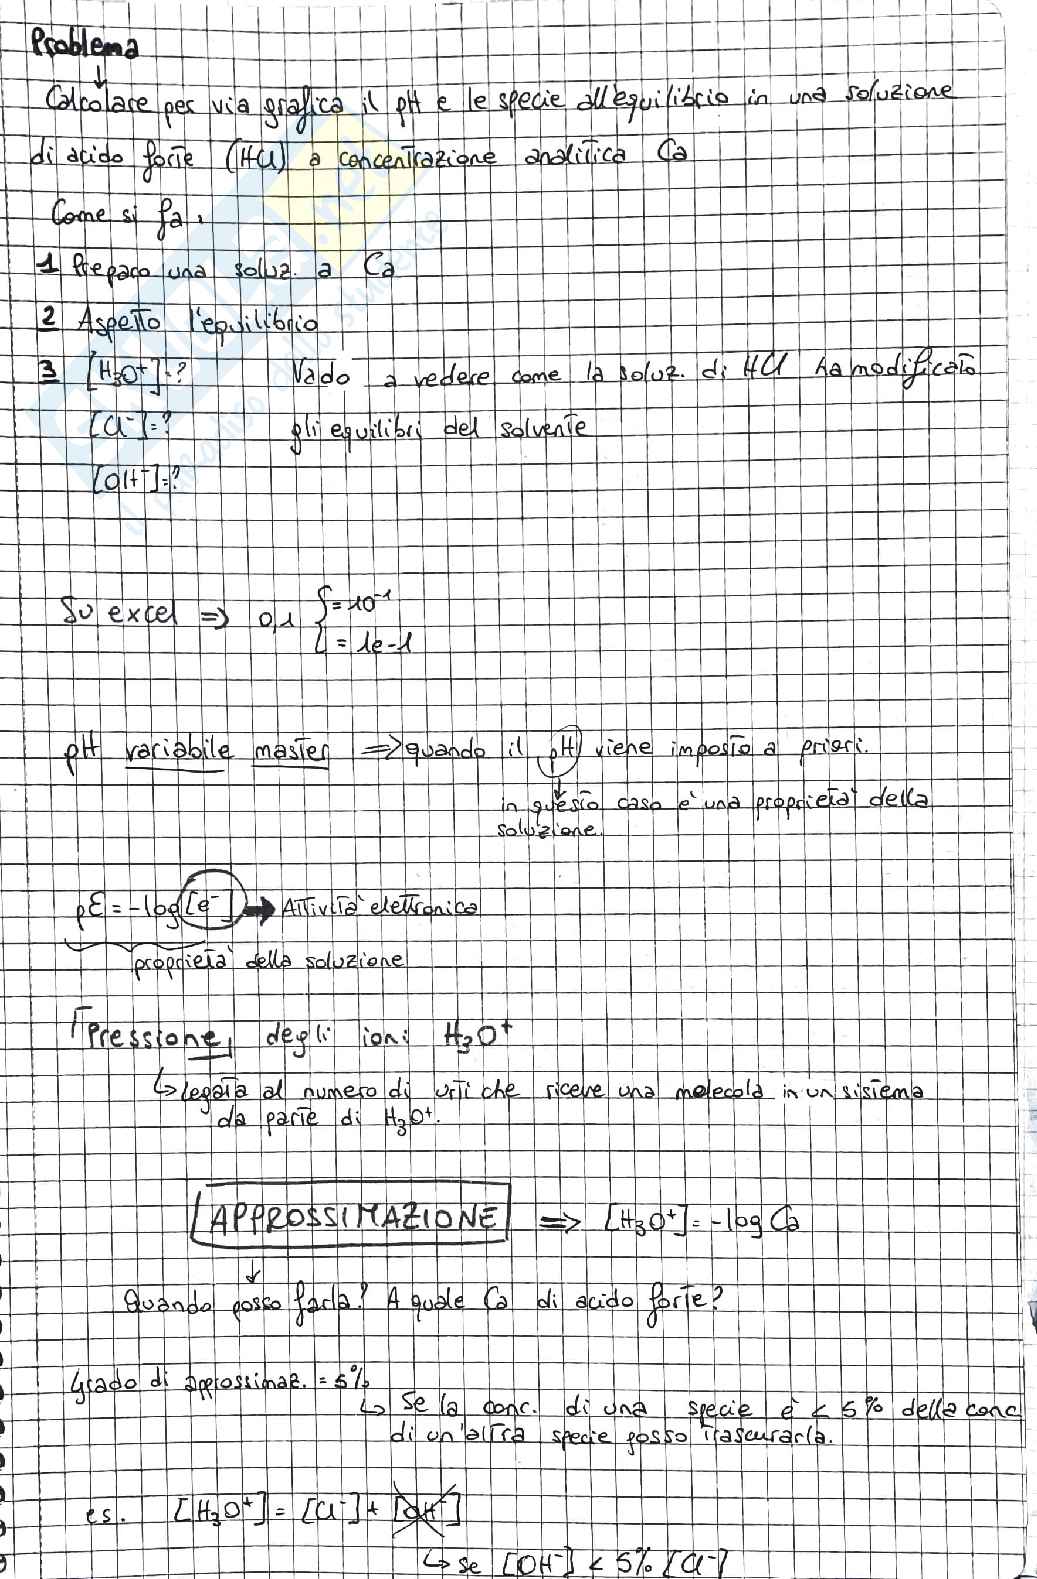 Problema
↓
Calcolare per via grafica il pH e le specie all'equilibrio in una soluzione
di acido forte (HCl) a concentrazione analitica Ca
Come si fa:
1 Preparo una soluz. a Ca
2 Aspetto l'equilibrio
3 [H₃O⁺]=? Vado a vedere come la soluz. di HCl ha modificato
[Cl⁻]=? gli equilibri del solvente
[OH⁻]=?
Su excel ⇒ 0,1 { = 10⁻¹
= 1e-1
pH variabile master ⇒ quando il pH viene imposto a priori.
↓
in questo caso è una proprietà della
soluzione.
pE = -log[e⁻] → Attività elettronica
proprietà della soluzione
"Pressione" degli ioni H₃O⁺
↳ legata al numero di urti che riceve una molecola in un sistema
da parte di H₃O⁺.
APPROSSIMAZIONE ⇒ [H₃O⁺] = -log Ca
↓
Quando posso farla? A quale Ca di acido forte?
Grado di approssimaz. = 5%
↳ Se la conc. di una specie è < 5% della conc
di un'altra specie posso trascurarla.
es. [H₃O⁺] = [Cl⁻] + [OH⁻]
↳ se [OH⁻] < 5% [Cl⁻]